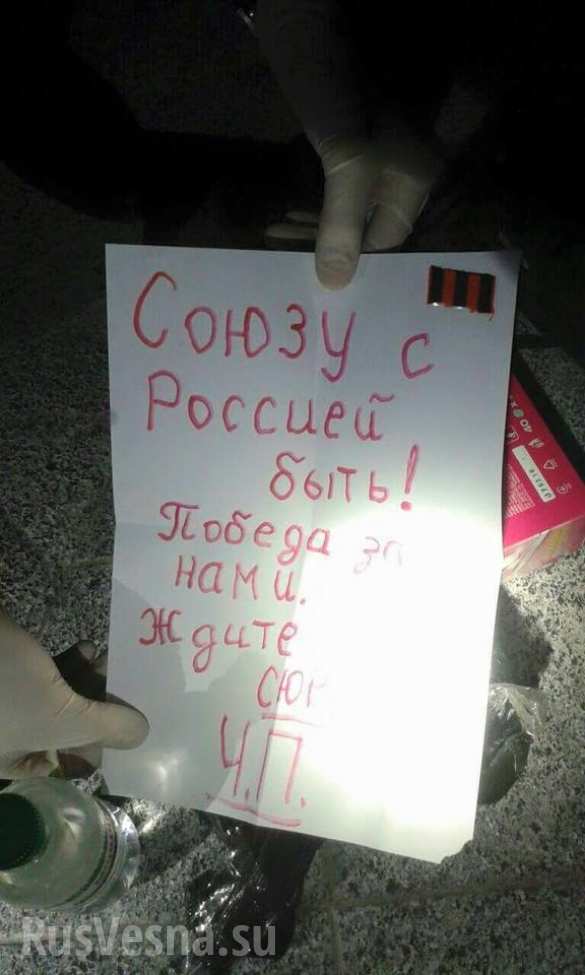 Союзу с
Россией
быть!
Победа за
нами.
Ждите
Ч.П.
RusVesna.su